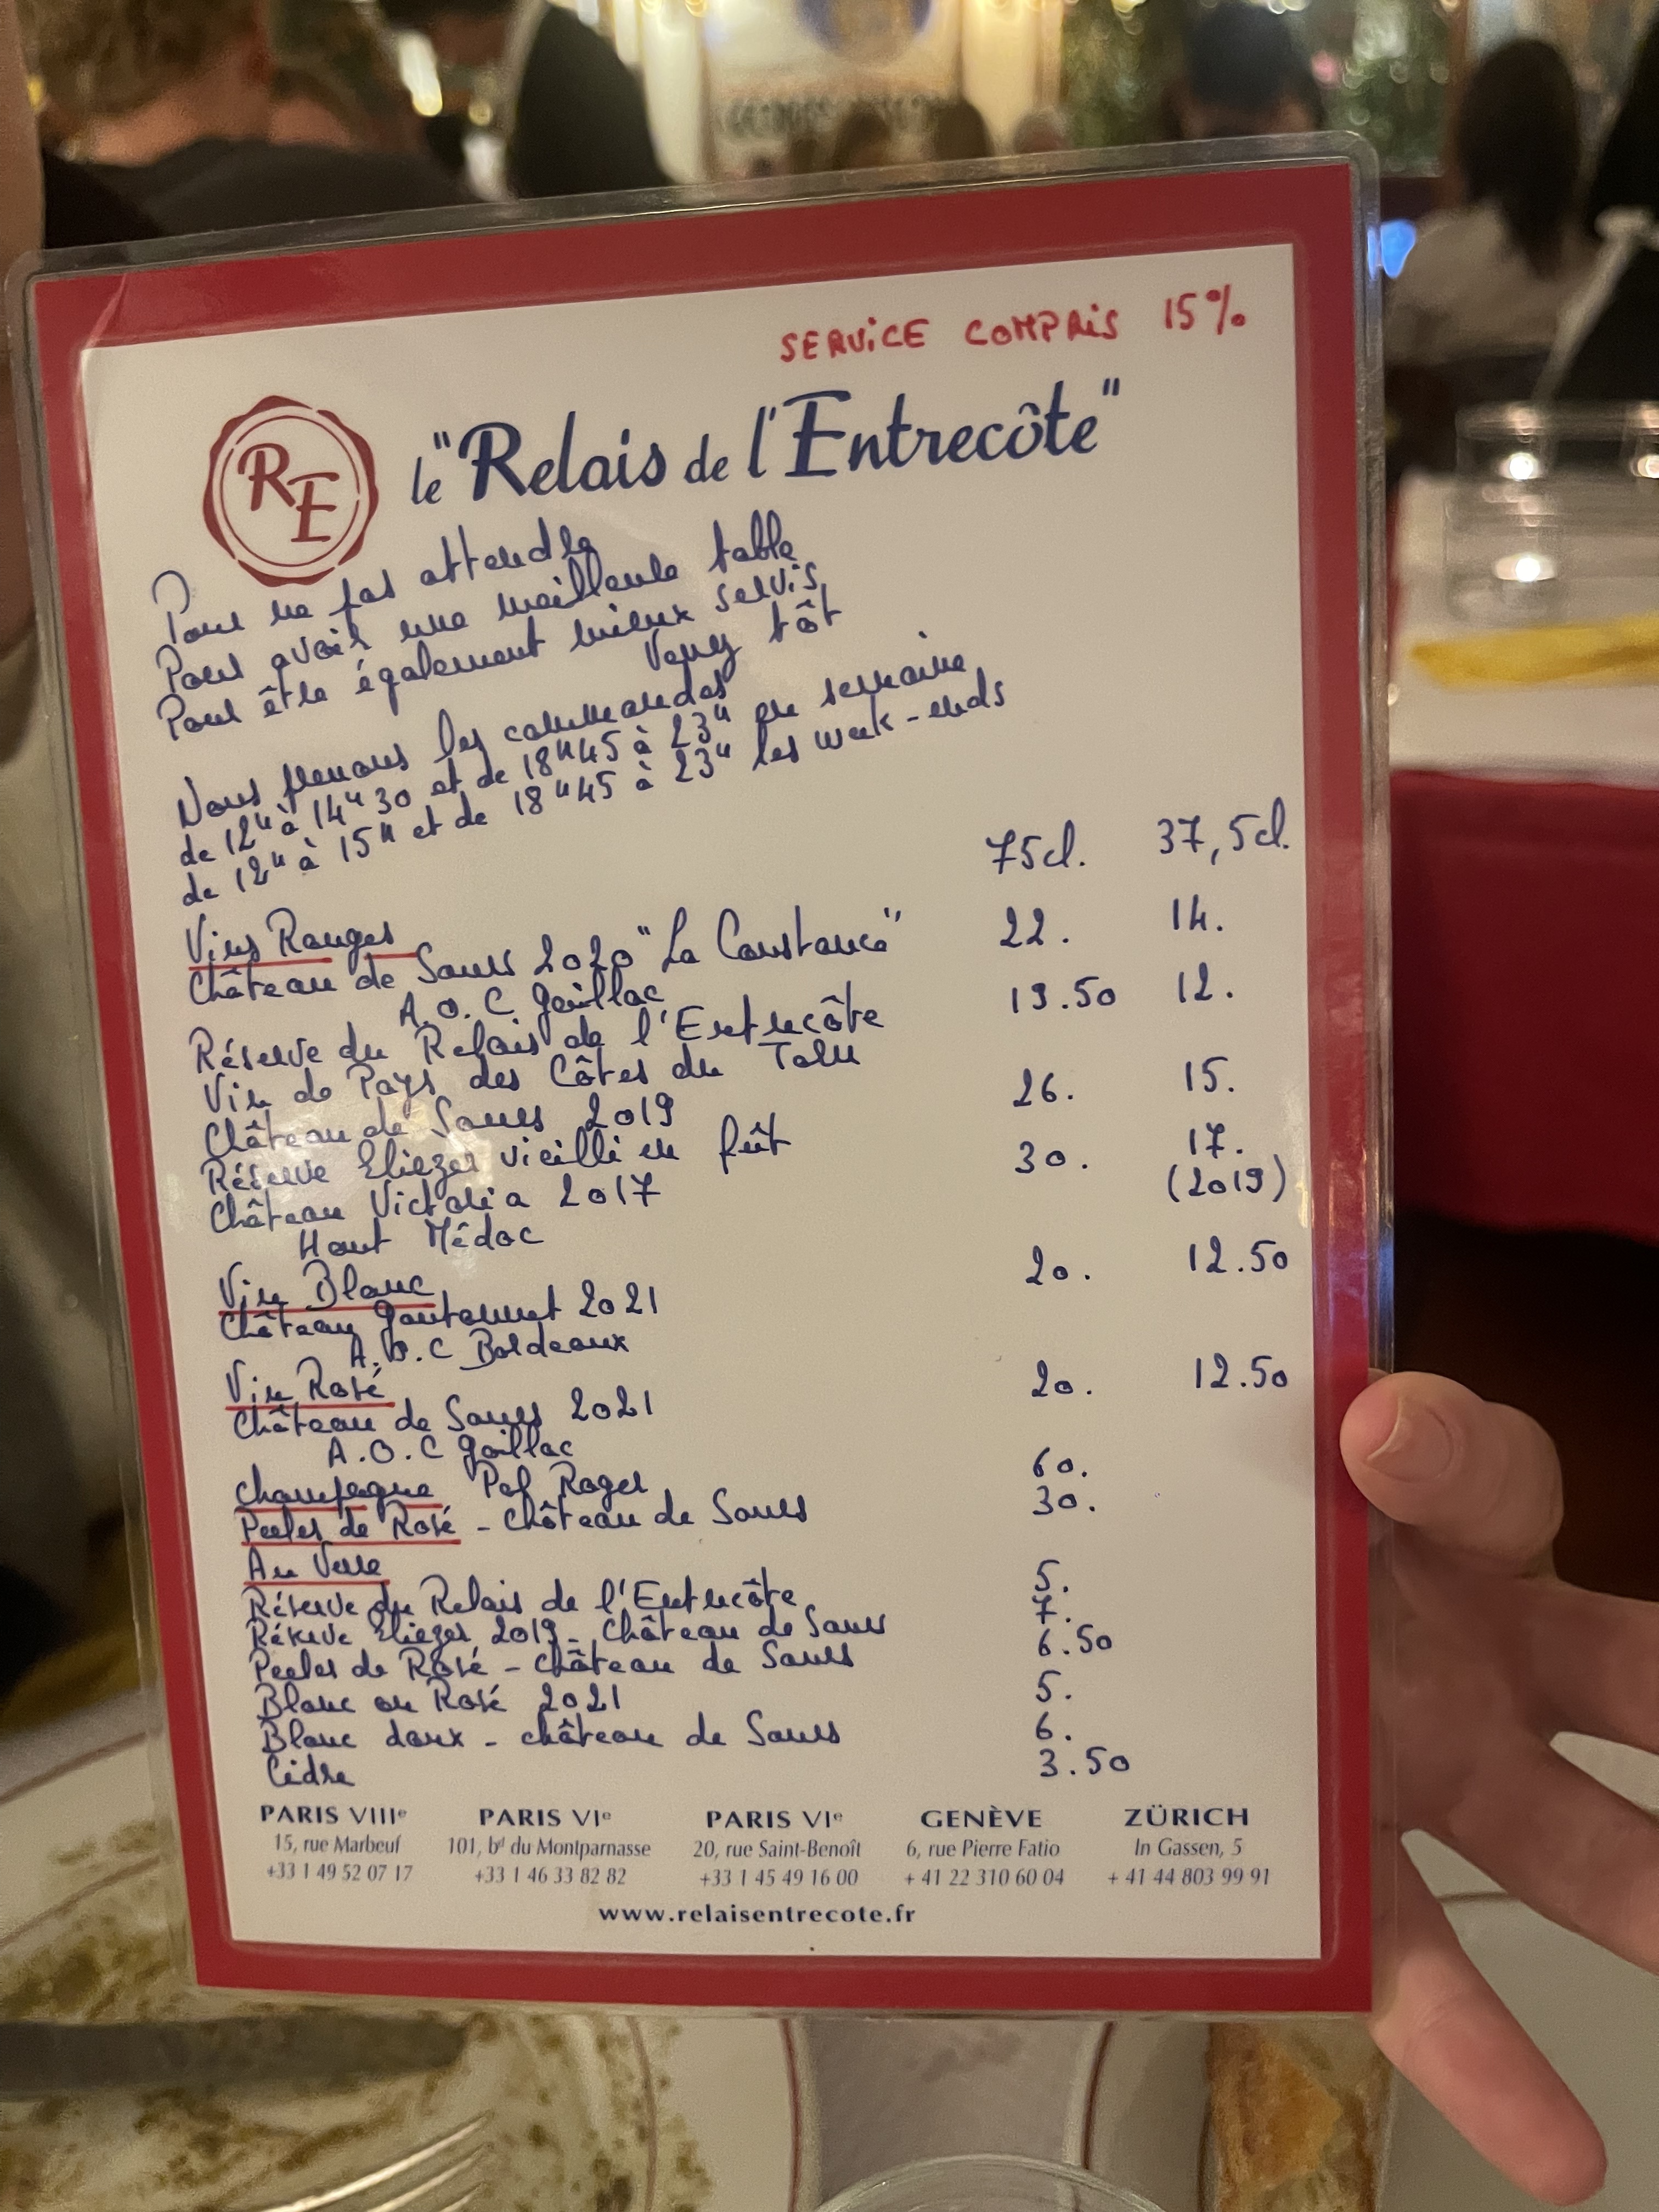 SERVICE COMPRIS 15%
RE
le "Relais de l'Entrecôte"
Pour ne pas attendre
Pour avoir une meilleure table
Pour être également mieux servis,
Venez tôt
Nous prenons les commandes
de 12H à 14H30 et de 18H45 à 23H en semaine
de 12H à 15H et de 18H45 à 23H les week-ends
75cl. 37,5cl.
Vins Rouges
Château de Saurs 2020 "La Constance" 22. 14.
A.O.C Gaillac
Réserve du Relais de l'Entrecôte 19.50 12.
Vin de Pays des Côtes du Tarn
Château de Saurs 2019 26. 15.
Réserve Eliezer vieilli en fût
Château Victoria 2017 30. 17.
(2019)
Haut Médoc
Vin Blanc
Château 2021 20. 12.50
A.O.C Bordeaux
Vin Rosé
Château de Saurs 2021 20. 12.50
A.O.C Gaillac
Champagne Pol Roger 60.
Perles de Rosé - Château de Saurs 30.
Au Verre
Réserve du Relais de l'Entrecôte 5.
Réserve Eliezer 2019 - Château de Saurs 7.
Perles de Rosé - Château de Saurs 6.50
Blanc ou Rosé 2021 5.
Blanc doux - château de Saurs 6.
Cidre 3.50
PARIS VIIIe PARIS VIe PARIS VIe GENÈVE ZÜRICH
15, rue Marbeuf 101, bd du Montparnasse 20, rue Saint-Benoît 6, rue Pierre Fatio In Gassen, 5
+33 1 49 52 07 17 +33 1 46 33 82 82 +33 1 45 49 16 00 + 41 22 310 60 04 + 41 44 803 99 91
www.relaisentrecote.fr